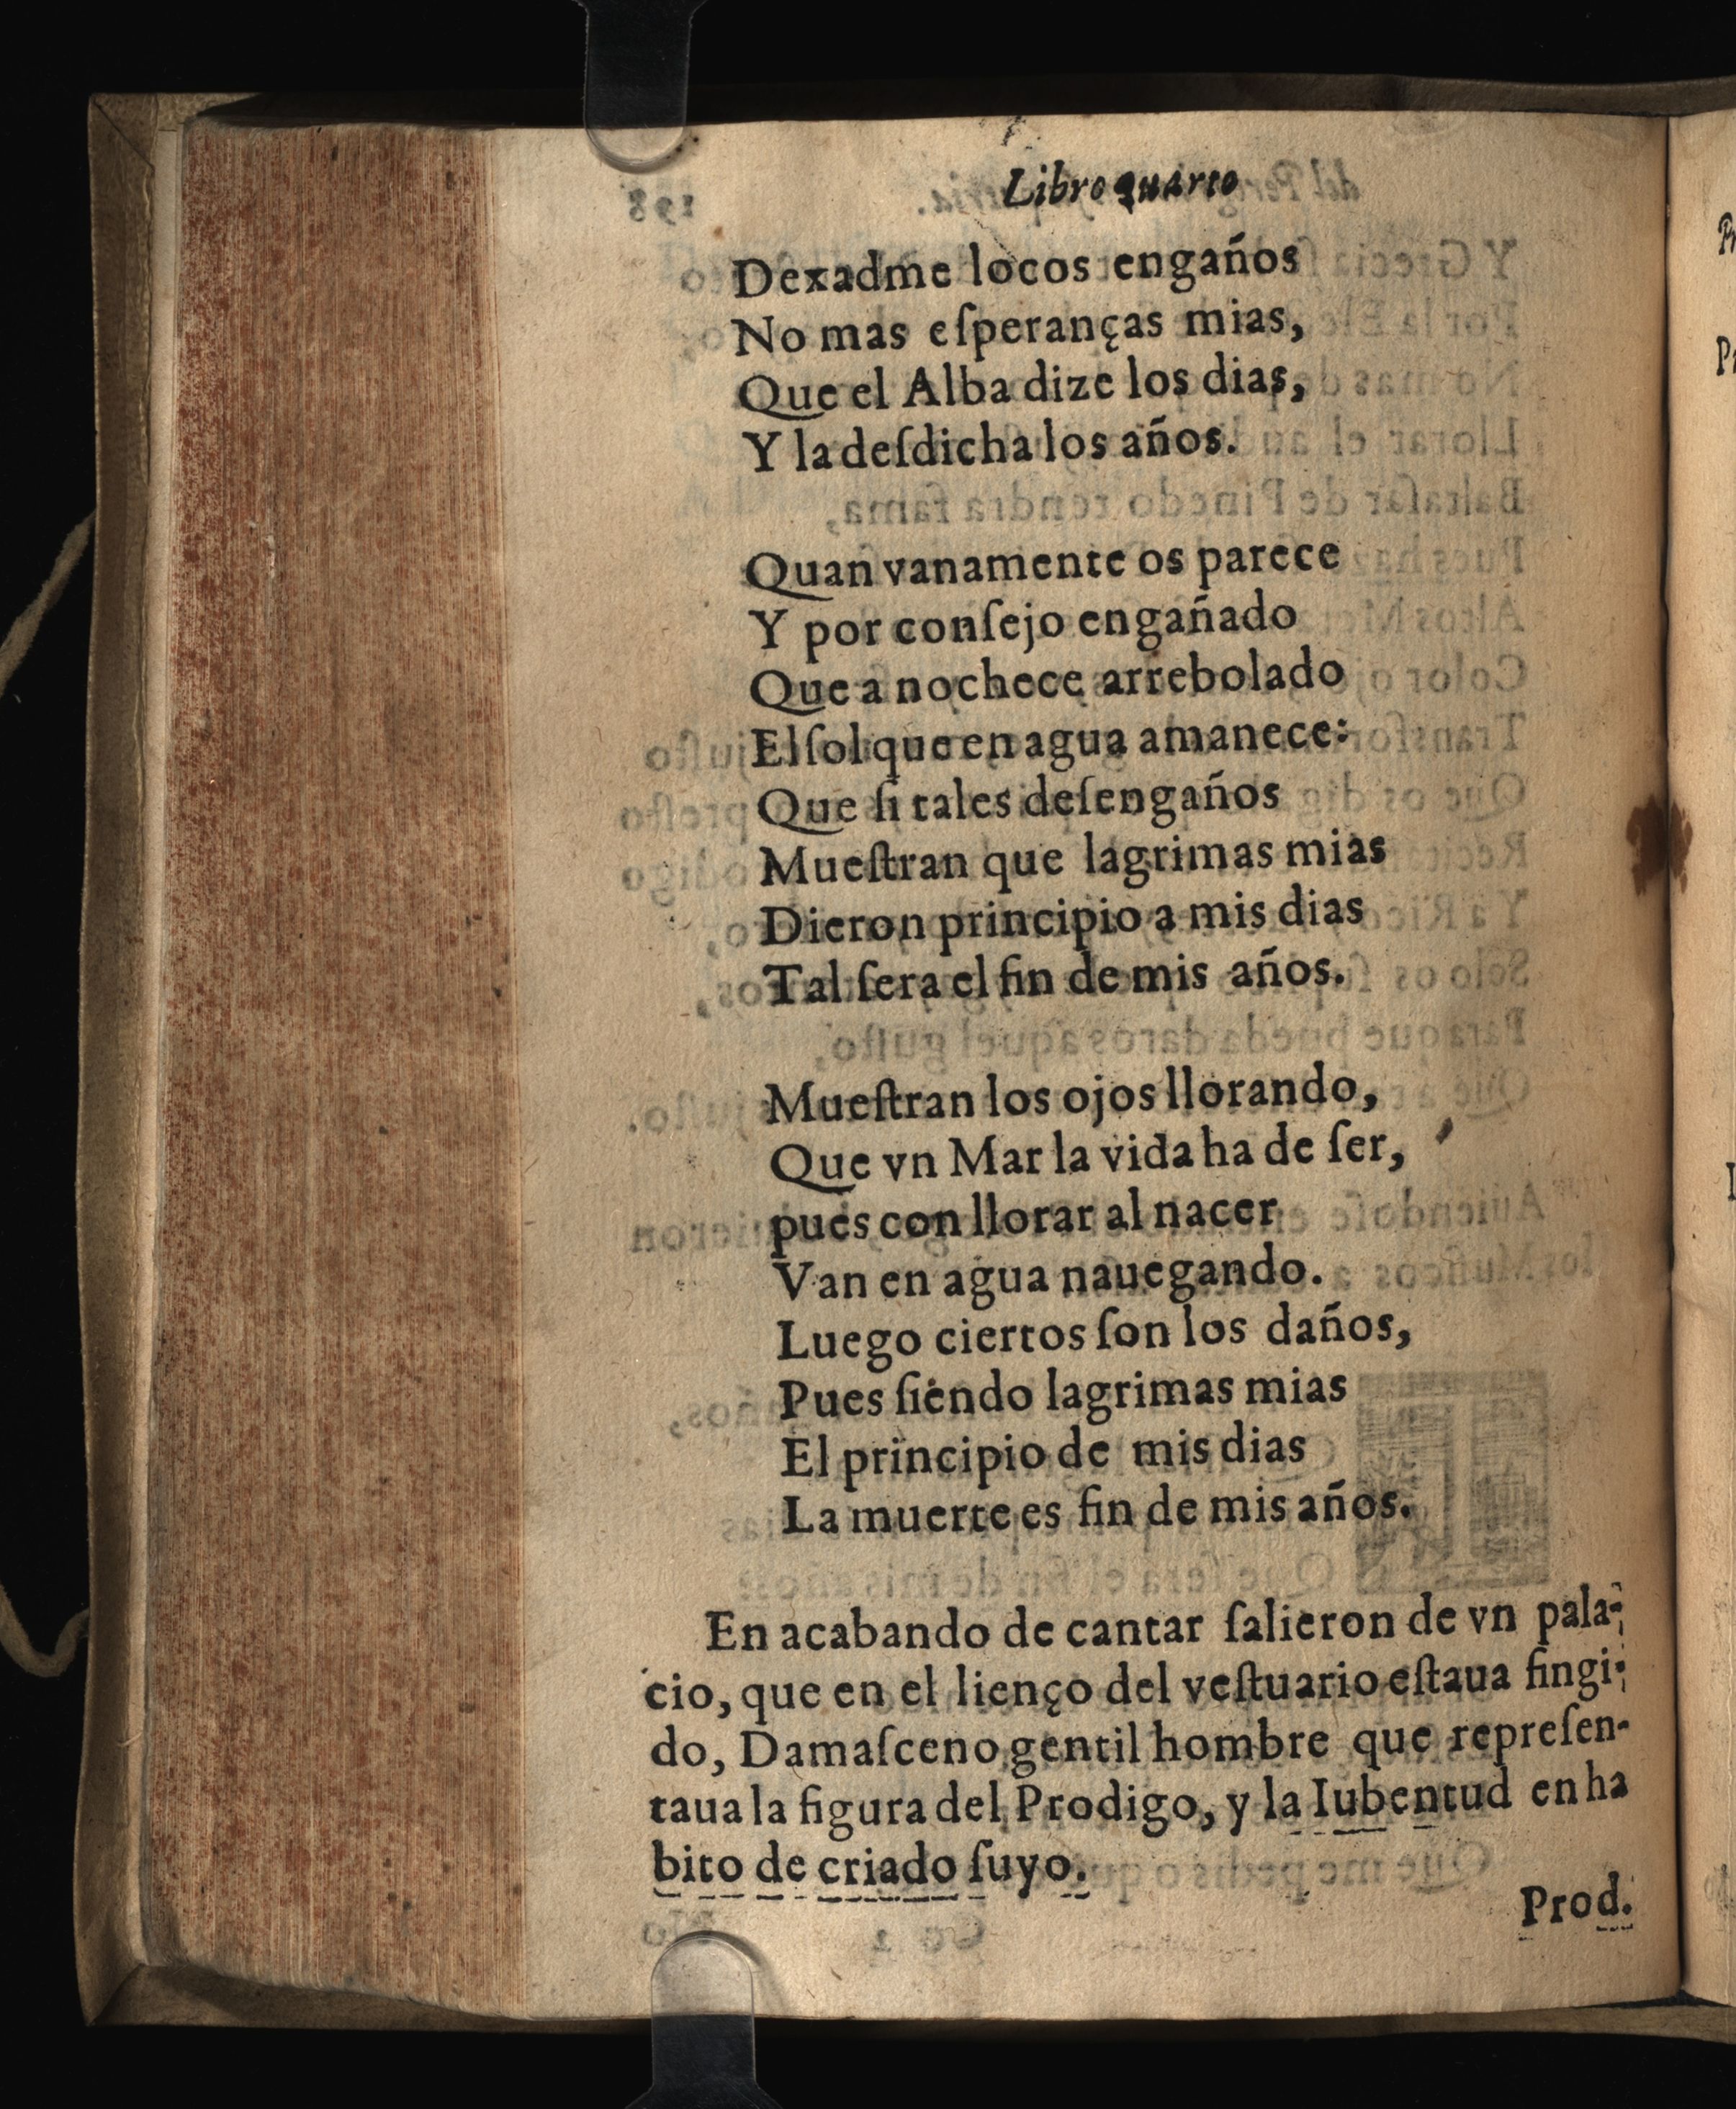 Libro quarto
Dexadme locos engaños
No mas eſperanças mias,
Que el Alba dize los dias,
Y la deſdicha los años.
Quan vanamente os parece
Y por conſejo engañado
Que anochece arrebolado
El ſol que en agua amanece:
Que ſi tales deſengaños
Mueſtran que lagrimas mias
Dieron principio a mis dias
Tal ſera el fin de mis años.
Mueſtran los ojos llorando,
Que vn Mar la vida ha de ſer,
pues con llorar al nacer
Van en agua nauegando.
Luego ciertos ſon los daños,
Pues ſiendo lagrimas mias
El principio de mis dias
La muerte es fin de mis años.
En acabando de cantar ſalieron de vn pala-
cio, que en el lienço del veſtuario eſtaua fingi-
do, Damaſceno gentil hombre que repreſen-
taua la figura del Prodigo, y la Iubentud en ha
bito de criado ſuyo.
Prod.